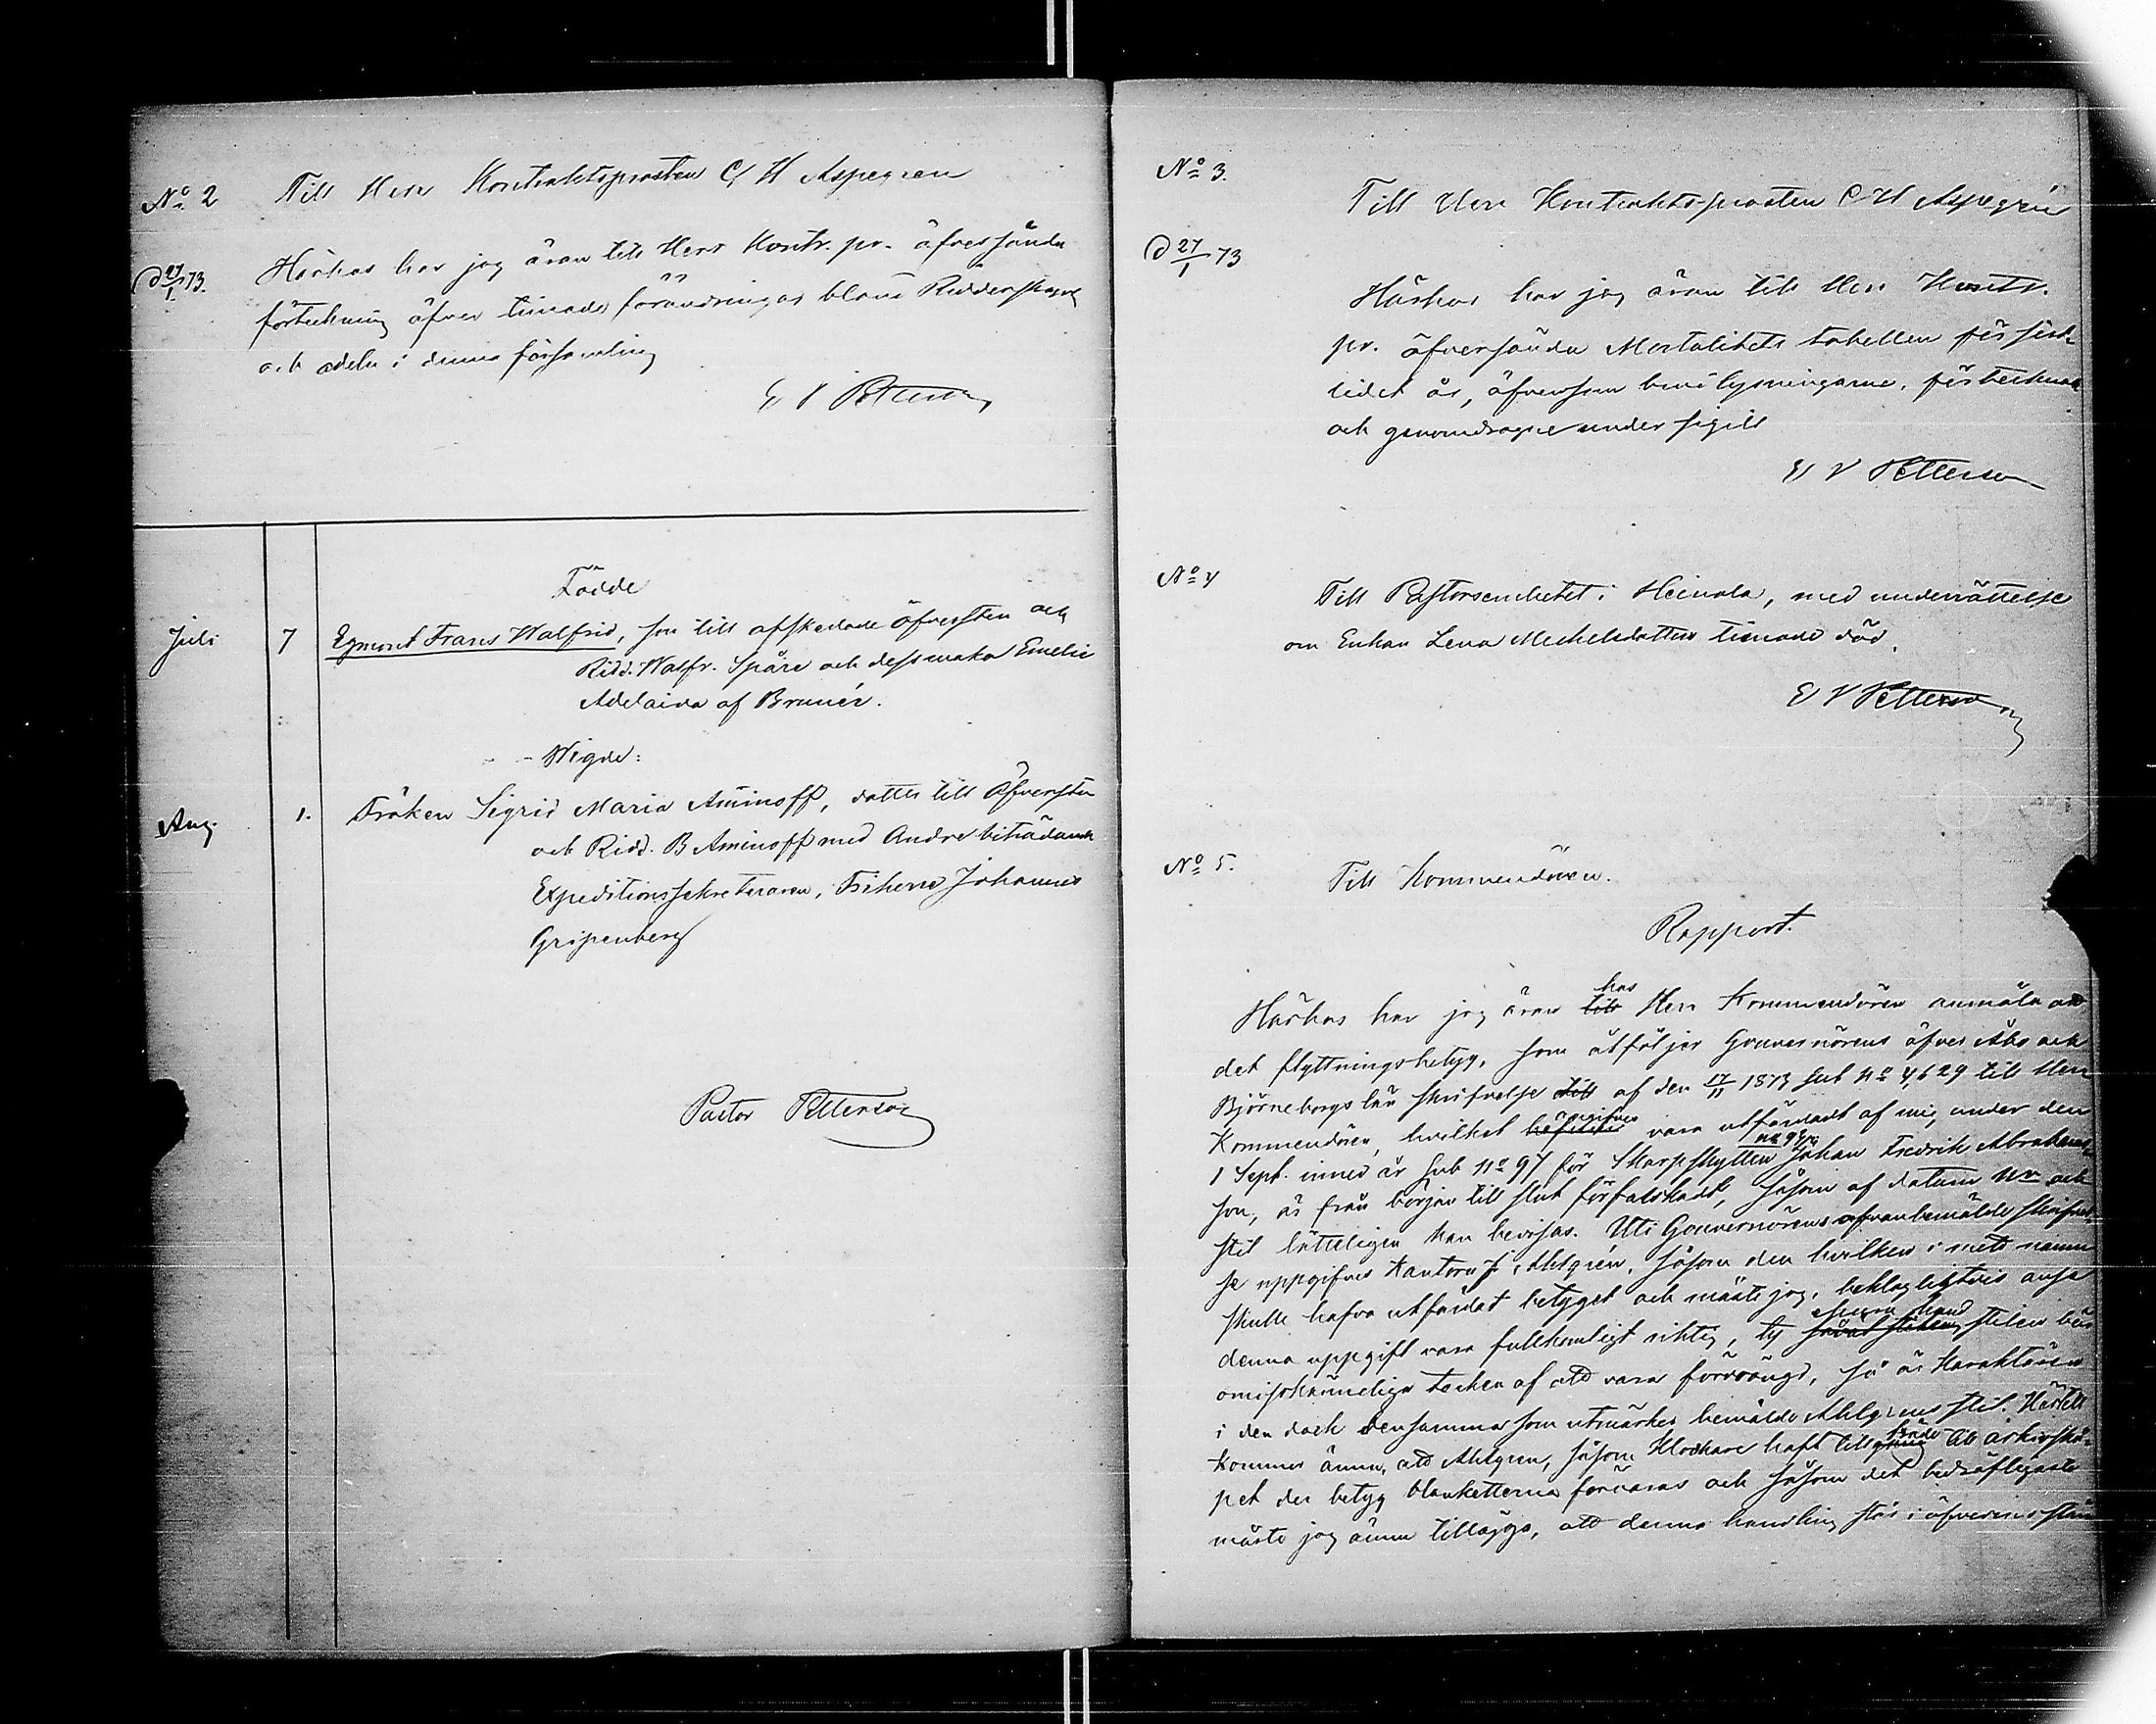 No 2
Till Herr Kontraktsprosten C H Aspegren
d 27/1 73.
Härhos har jag äran till Herr Kontr. pr. öfversända
förteckning öfver timade förändringar bland Ridderskapet
och adeln i denna församling
E V Petterson
Födde
Juli 7 Egmont Frans Walfrid, son till afskedade öfversten och
Ridd. Walfr. Spåre och dess maka Emelie
Adelaida af Brunér.
Wigde:
Aug. 1. Fröken Sigrid Maria Aminoff, dotter till Öfversten
och Ridd. B Aminoff med Andre biträdande
Expeditionssekreteraren, Friherre Johannes
Gripenberg
Pastor Petterson
No 3.
Till Herr Kontraktsprosten C H Aspegrén
d 27/1 73
Härhos har jag äran till Herr Kontr.
pr. öfversända Mortalitets tabellen för sist-
lidet år, äfvensom lysningarne,
och genomdragne under sigill
E V Petterson
No 4
Till Pastorsembetet i Heinola, med underrättelse
om Enkan Lena Michelsdotters timade död.
E V Petterson
No 5.
Till Kommendören.
Rapport.
Härhos har jag äran till hos Herr Kommendören anmäla att
det flyttningsbetyg, som åtföljer Gouvernörens öfver Åbo och
Björneborgs län skrifvelse till af den 17/11 1873 sub No 4,629 till Herr
Kommendören, hvilket angifves vara utfärdadt af mig under den
1 Sept. inned. år sub No 97 för Skarpskytten No 94 Johan Fredrik Abraham-
son, är från början till slut förfalskadt, såsom af datum Nr och
stil lätteligen kan bevisas. Uti Gouvernörens ofvanbemälde skrifvel-
se uppgifves Kantorn J. Ahlgrén, såsom den hvilken i mitt namn
skulle hafva utfärdat betyget och måste jag, beklagligtvis anse
denna uppgift vara fullkomligt riktig, ty ehuru hand stilen bär
omisskänneliga tecken af att vara förvrängd, så är karaktären
i den dock densamma som utmärker bemälde Ahlgrens stil. Härtill
kommer ännu, att Ahlgren, såsom Klockare haft tillgång till arkivskå-
pet der betyg blanketterna förvaras och såsom det bedröfligaste
måste jag ännu tillägga, att denna handling står i öfverensstäm